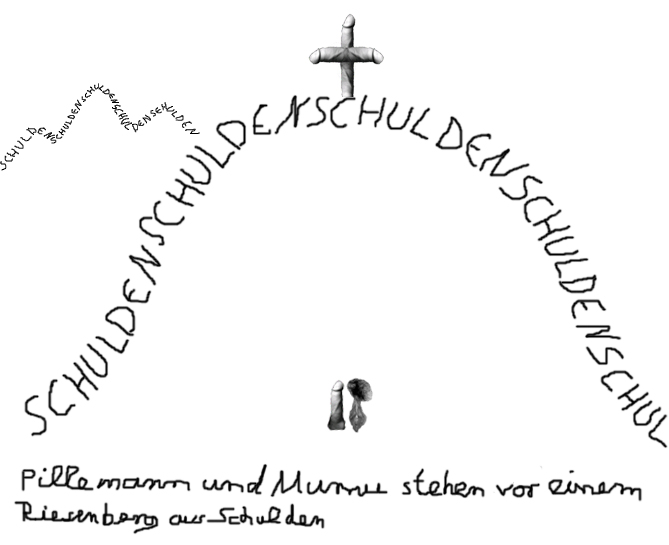 SCHULDENSCHULDENSCHULDENSCHULDEN
SCHULDENSCHULDENSCHULDENSCHULDENSCHUL
Pillemann und Mumu stehen vor einem
Riesenberg aus Schulden